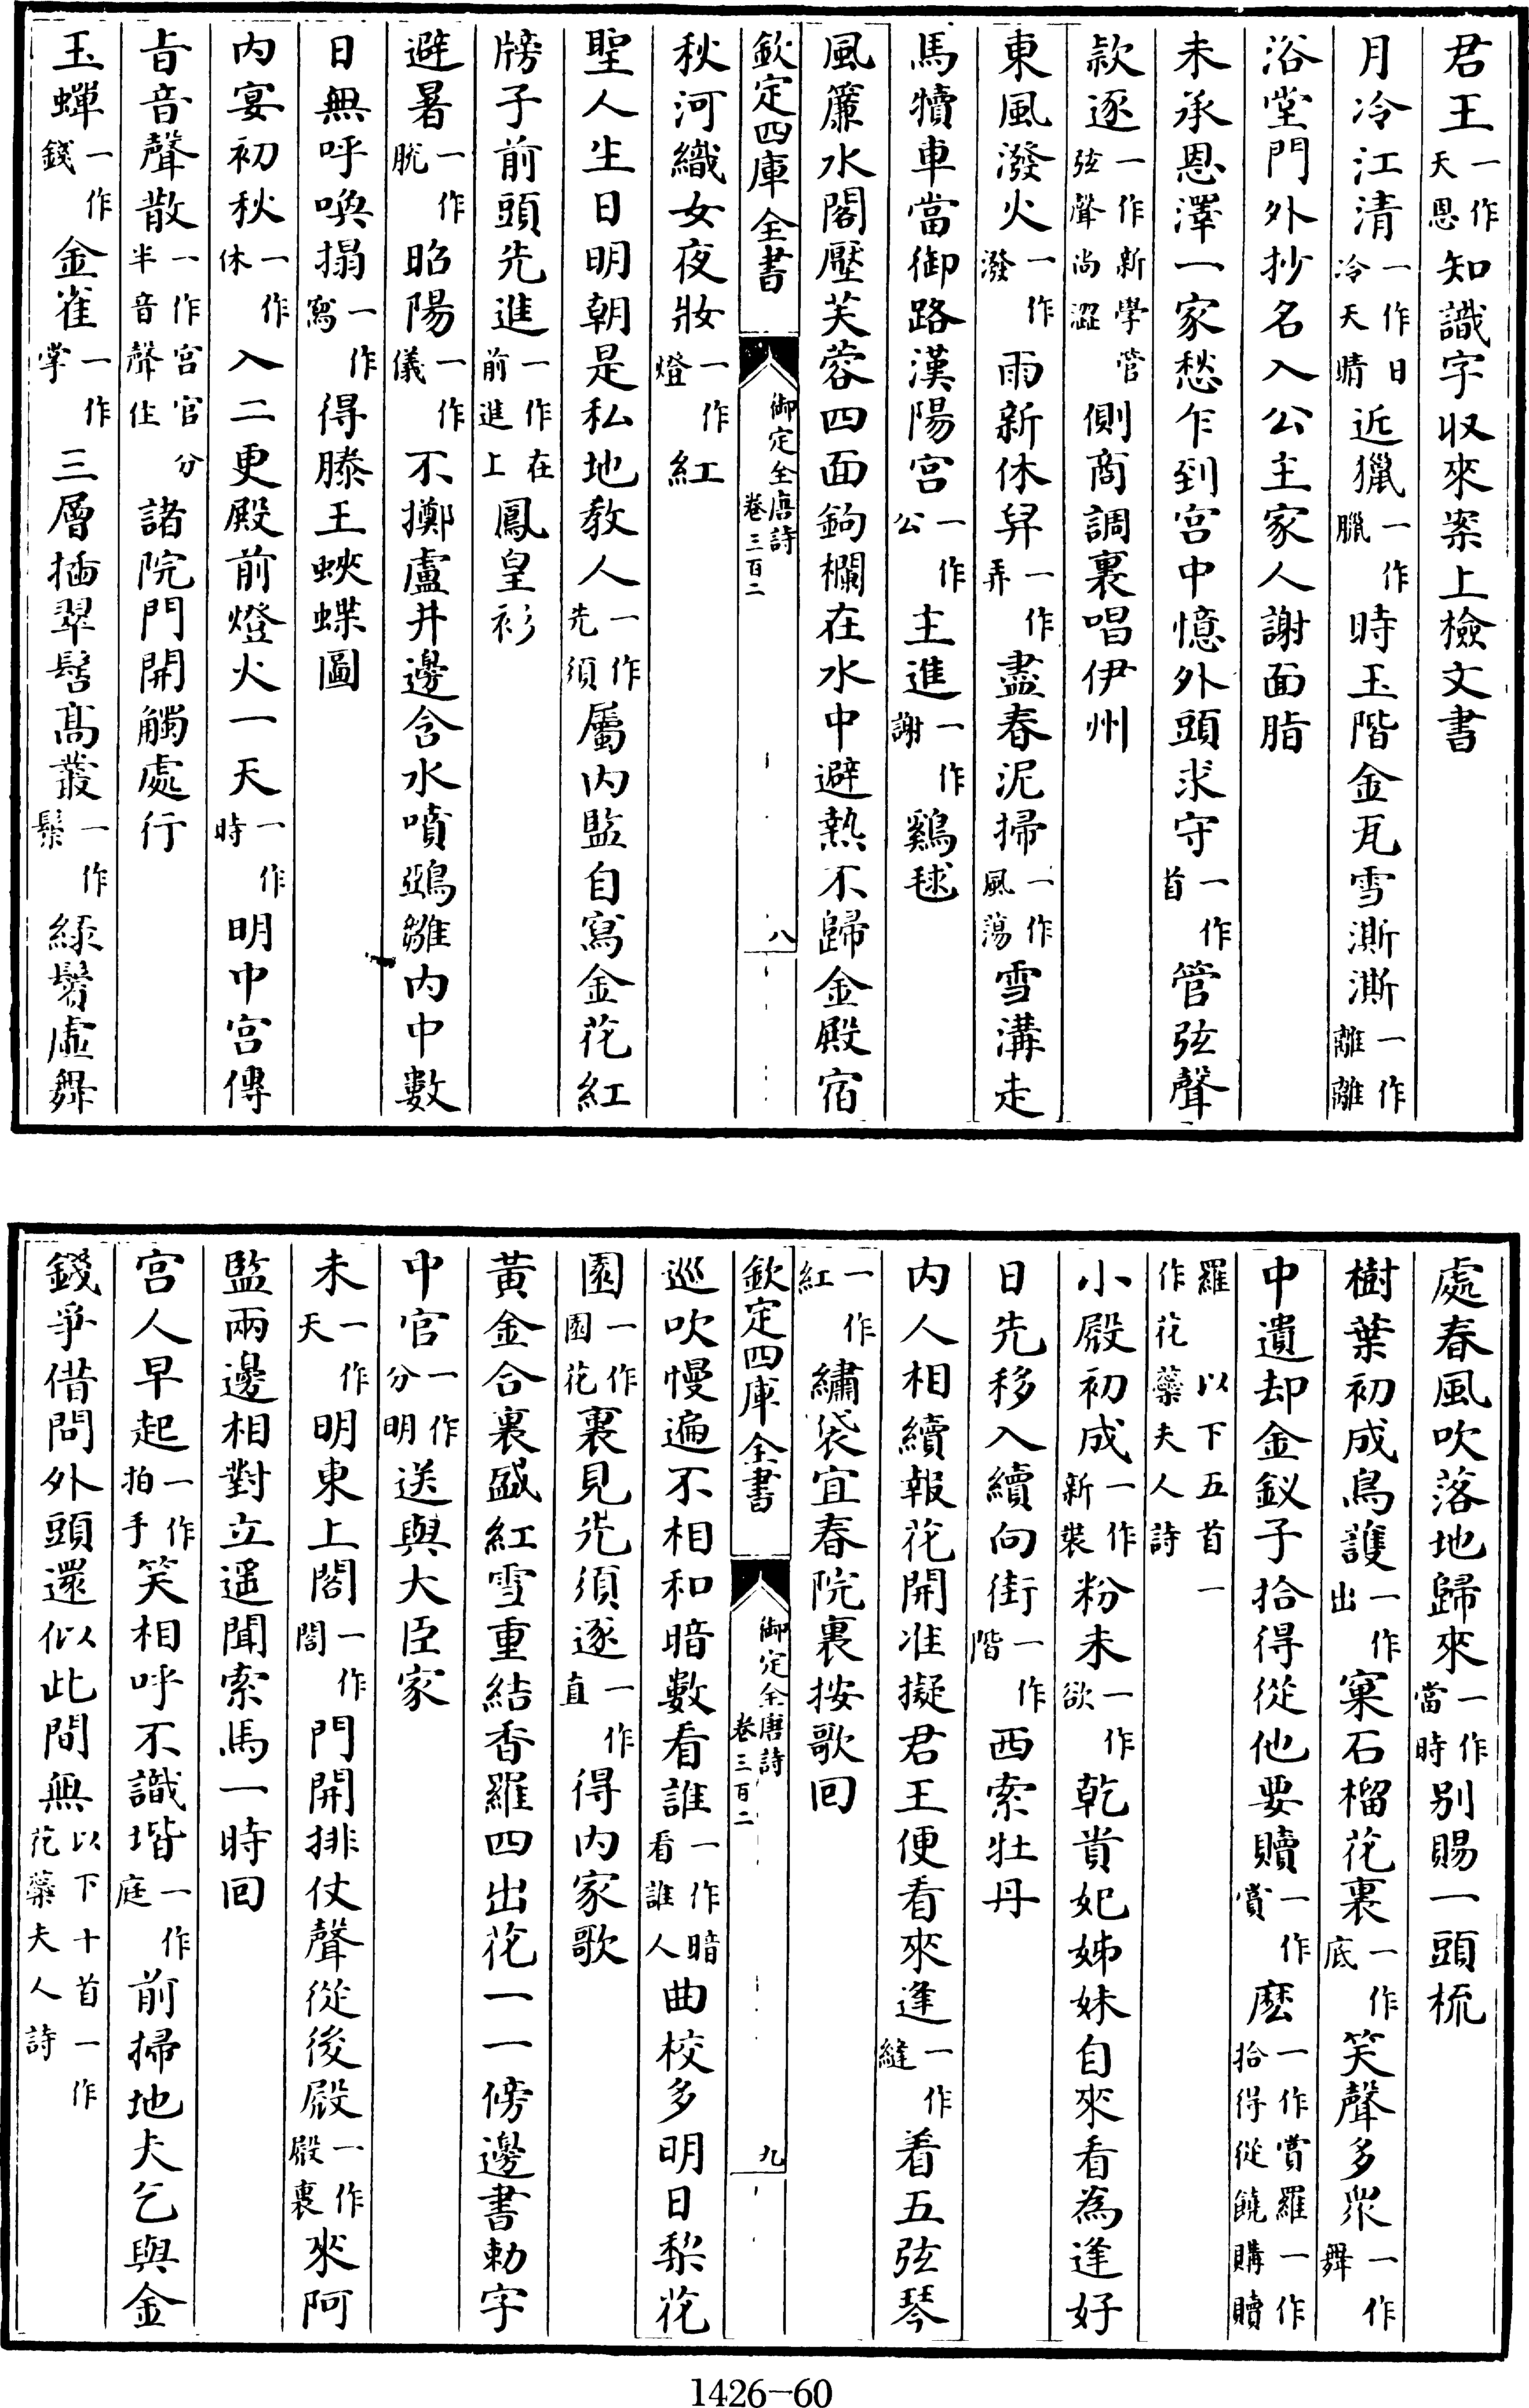 君王一作天恩知識字収來案上檢文書
月冷江清一作日冷天晴近獵一作臘時玉階金瓦雪澌澌一作離離
浴堂門外抄名入公主家人謝面脂
未承恩澤一家愁乍到宫中憶外頭求守一作首管弦聲
款逐一作新學管弦聲尚澀側商調裏唱伊州
東風潑火一作潑雨新休舁一作弄盡春泥掃一作風蕩雪溝走
馬犢車當御路漢陽宫一作公主進一作謝鷄毬
風簾水閣壓芙蓉四面鉤欄在水中避熱不歸金殿宿
欽定四庫全書 御定全唐詩 卷三百二 八
秋河織女夜妝一作燈紅
聖人生日明朝是私地教人一作先須屬内監自寫金花紅
牓子前頭先進一作在前進上鳳皇衫
避暑一作脱昭陽一作儀不擲盧井邊含水噴鵶雛内中數
日無呼喚搨一作寫得滕王蛺蝶圖
内宴初秋一作休入二更殿前燈火一天一作時明中宫傳
㫖音聲散一作宫官分半音聲住諸院門開觸處行
玉蟬一作錢金雀一作掌三層插翠髻高叢一作鬆綠鬢虛舞
處春風吹落地歸來一作當時别賜一頭梳
樹葉初成鳥護一作出窠石榴花裏一作底笑聲多衆一作舞
中遺却金釵子拾得從他要贖一作賞麽一作賞羅一作拾得從饒購贖
羅 以下五首一作花蘂夫人詩
小殿初成一作新裝粉未一作欲乾貴妃姊妹自來看為逢好
日先移入續向街一作階西索牡丹
内人相續報花開准擬君王便看來逢一作縫着五弦琴
一作紅繡袋宜春院裏按歌回
欽定四庫全書 御定全唐詩 卷三百二 九
巡吹慢遍不相和暗數看誰一作暗看誰人曲校多明日棃花
園一作園花裏見先須逐一作直得内家歌
黃金合裏盛紅雪重結香羅四出花一一傍邊書勅字
中官一作分明送與大臣家
未一作天明東上閣一作閤門開排仗聲從後殿一作殿裏來阿
監兩邊相對立遥聞索馬一時回
宫人早起一作拍手笑相呼不識堦一作庭前掃地夫乞與金
錢爭借問外頭還似此間無以下十首一作花蘂夫人詩
1426-60